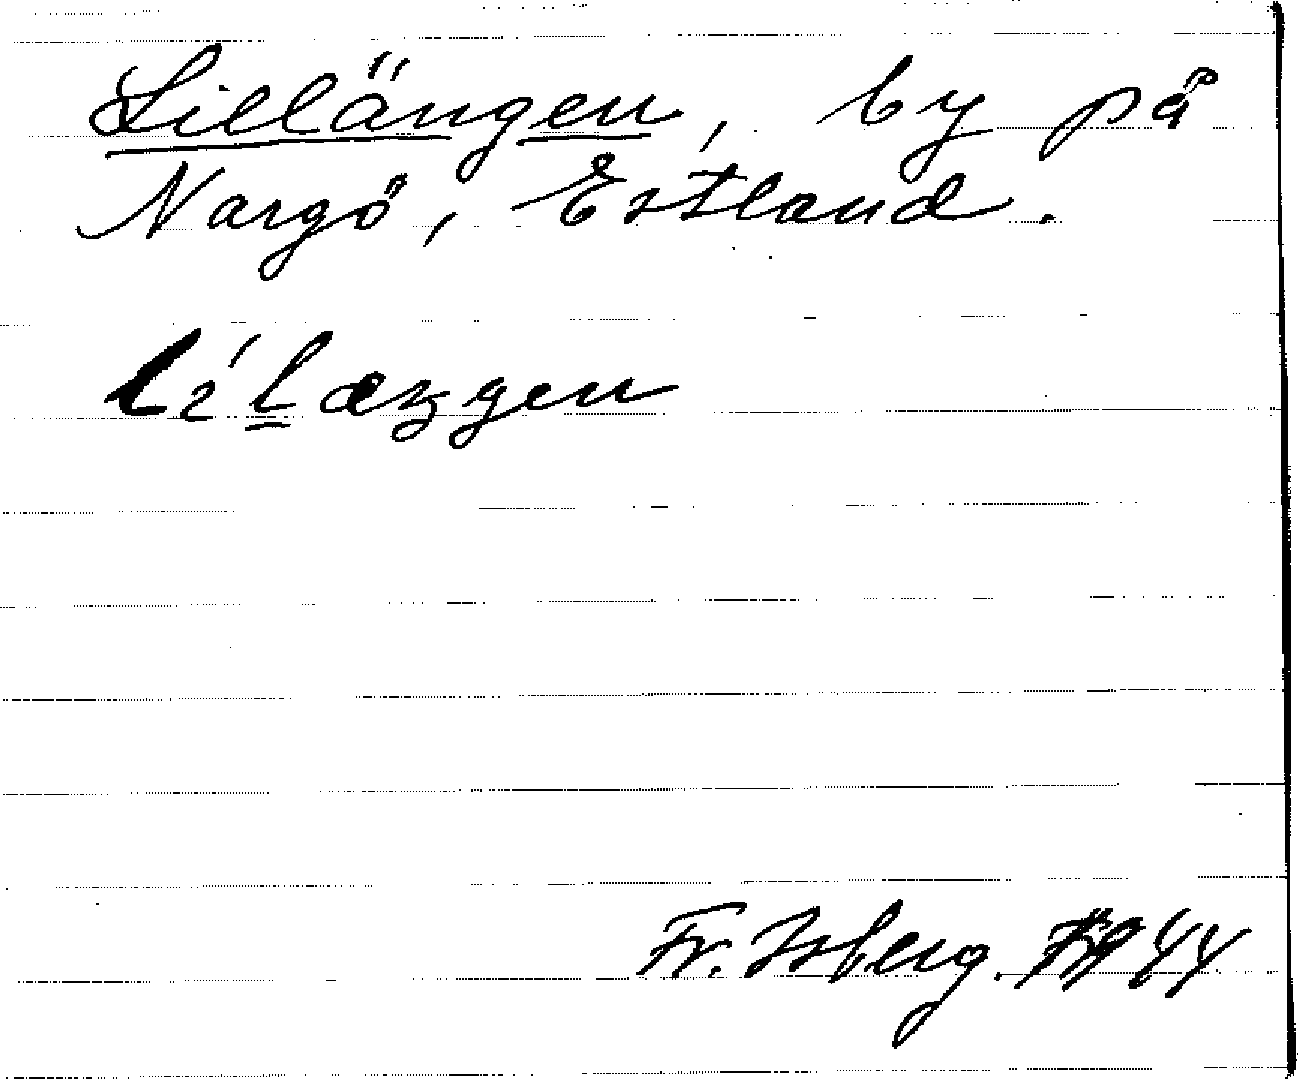 Lillängen, by på
Nargö, Estland.
lílæŋgen
Fr. Isberg. 1944